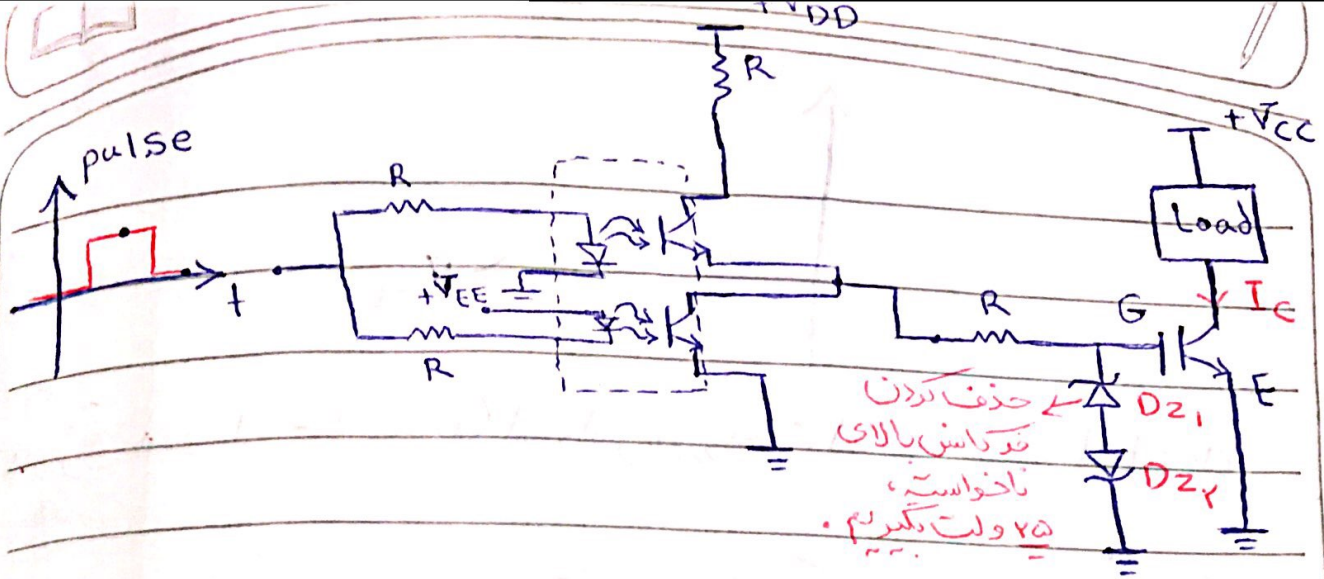 +VDD
R
pulse
+VCC
R
Load
+VEE
t
R
G
IC
R
E
DZ1
حذف کردن
فرکانس بالای
ناخواسته،
۲۵ ولت بگیریم.
DZ۲